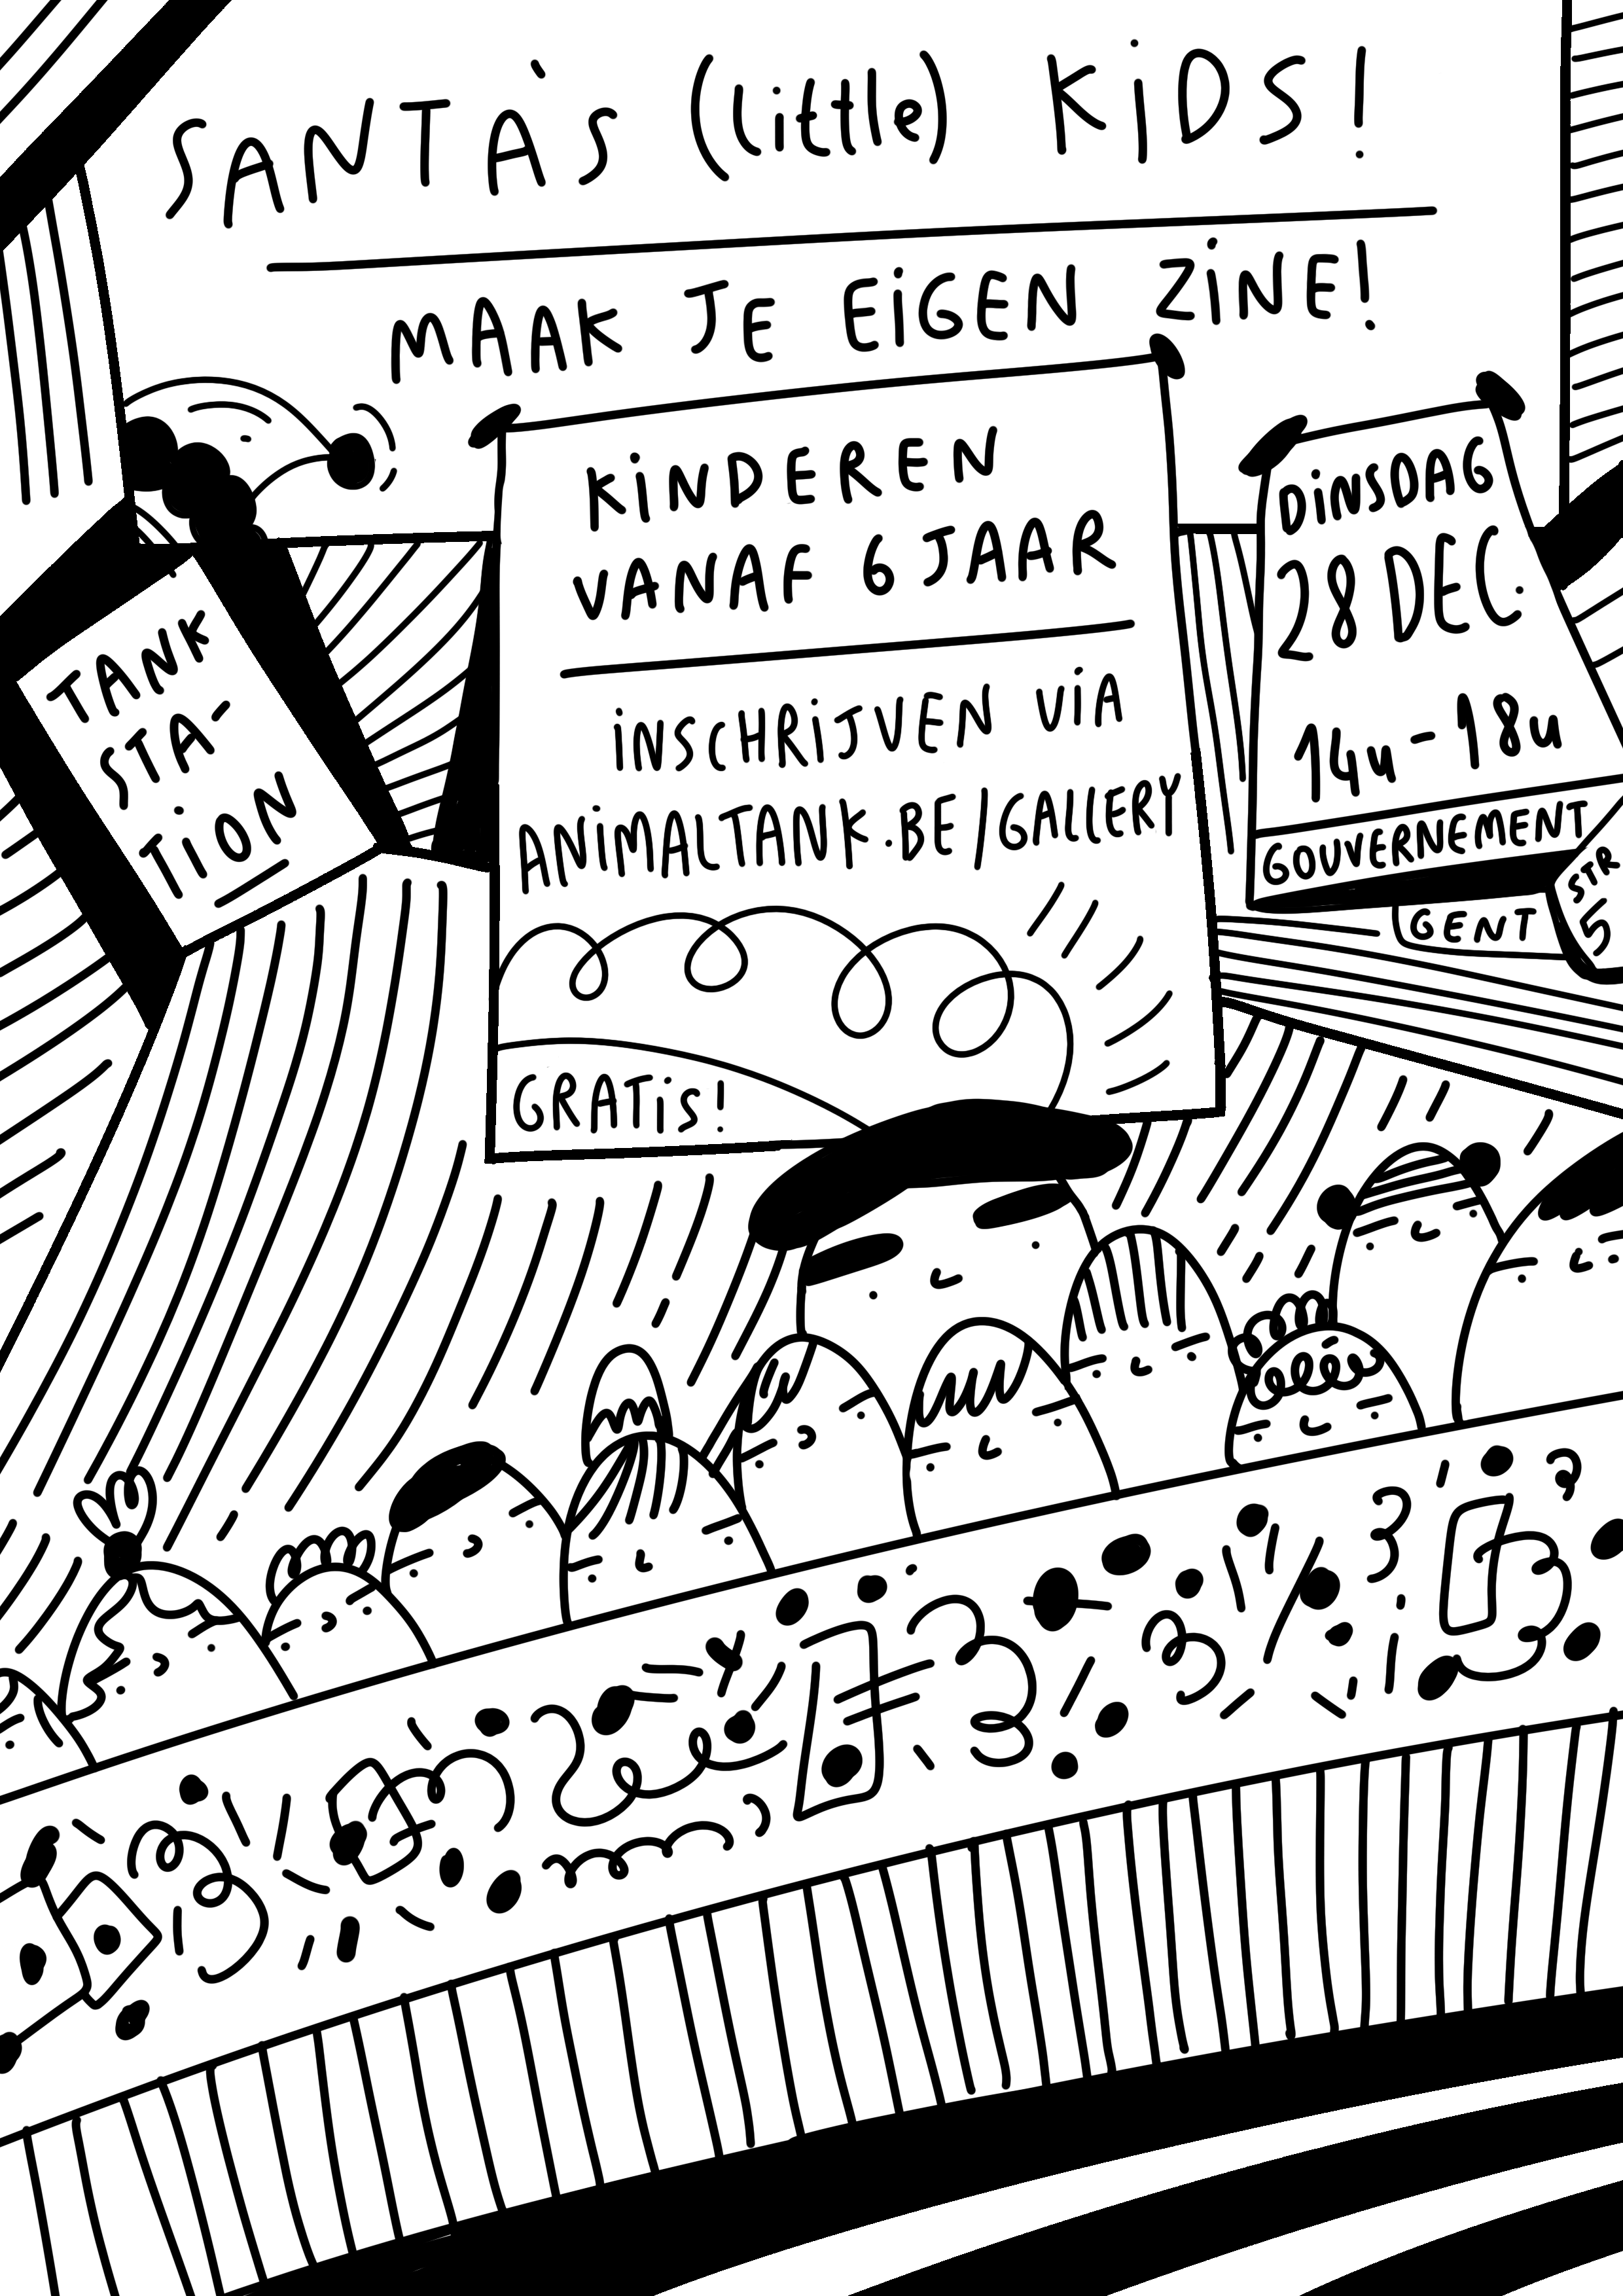 SANTA'S (little) KiDS!
MAAK JE EiGEN ZiNE!
KiNDEREN
VANAF 6 JAAR
iNSCHRiJVEN ViA
ANiMALTANK.BE/GALLERY
GRATiS!
DiNSDAG
28 DEC.
14u - 18u
GOUVERNEMENT
STR
5
GENT
TANK
STA-
TiON